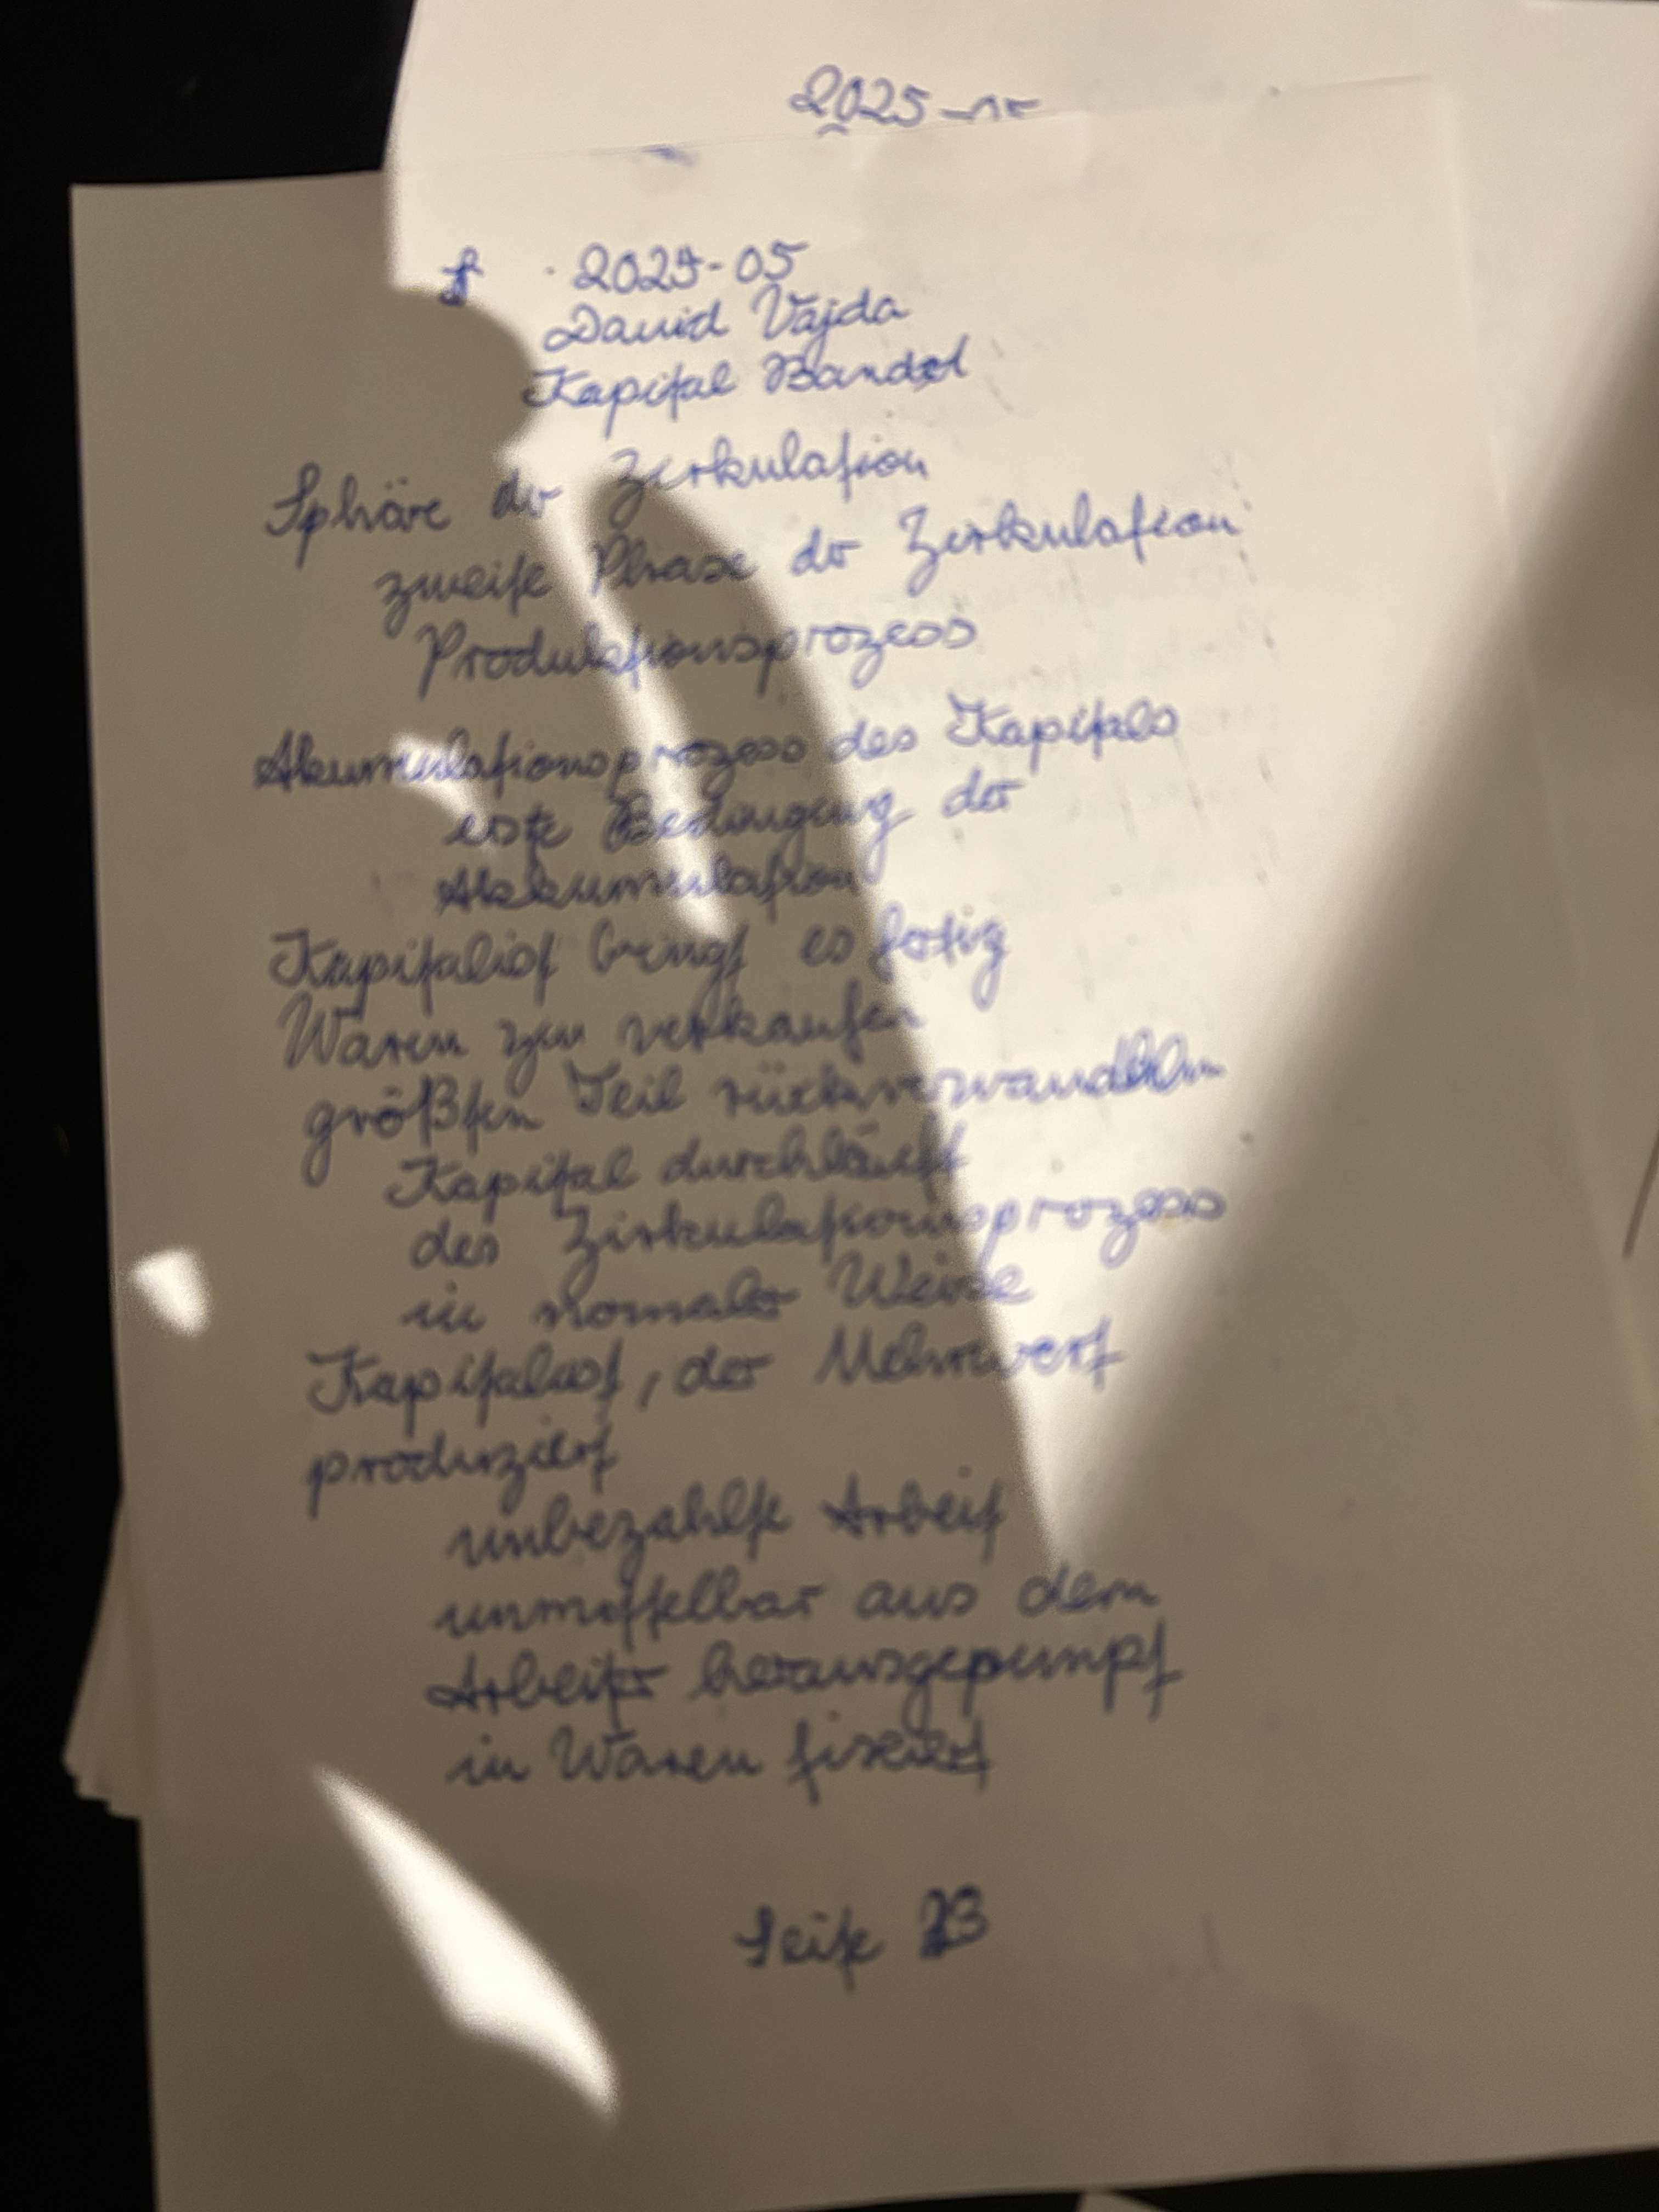 2025-05
2025-05
David Vajda
Kapital Band
Sphäre der Zirkulation
zweite Phase der Zirkulation
Produktionsprozess
Akumulationsprozess des Kapitals
erste Bedingung der
Akkumulation
Kapitalist bringt es fertig
Waren zu verkaufen
größten Teil rückverwandeln
Kapital durchläuft
des Zirkulationsprozess
in normaler Weise
Kapitalist, der Mehrwert
produziert
unbezahlte Arbeit
unmittelbar aus dem
Arbeiter herausgepumpt
in Waren fixiert
Seite 23